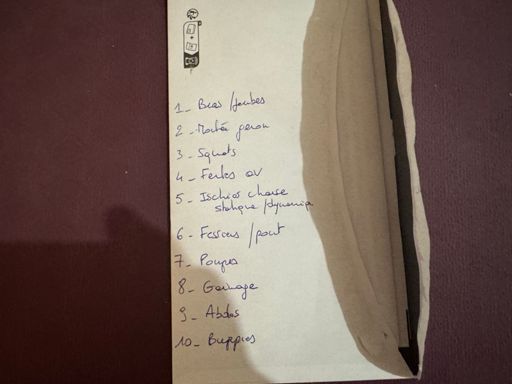 1_ Bras / jambes
2_ Montée genou
3_ Squats
4_ Fentes av
5_ Ischios chaise
statique / dynamiq
6_ Fessiers / pont
7_ Pompes
8_ Gainage
9_ Abdos
10_ Burpies